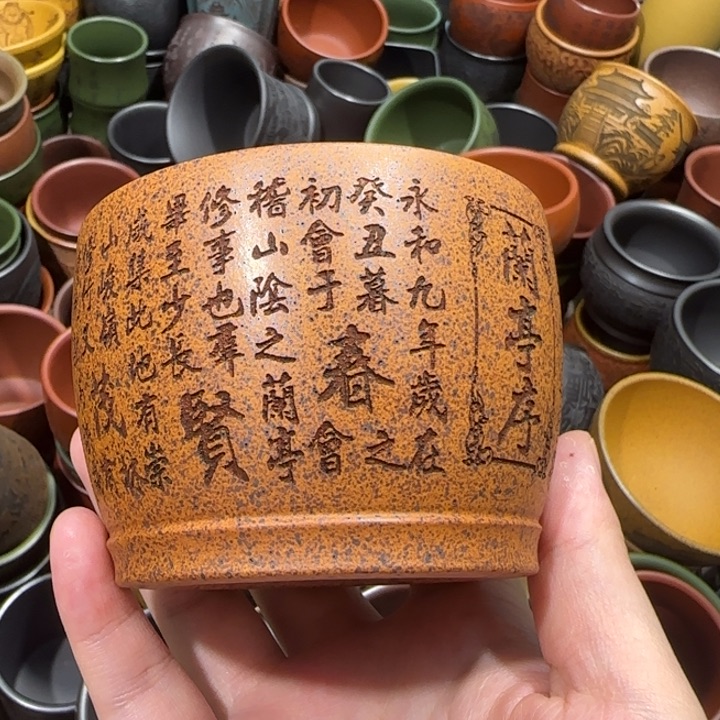 蘭亭序
永和九年歲在
癸丑暮春之
初會于會
稽山陰之蘭亭
修事也羣賢
畢至少長
咸集此地有崇
山峻嶺茂林